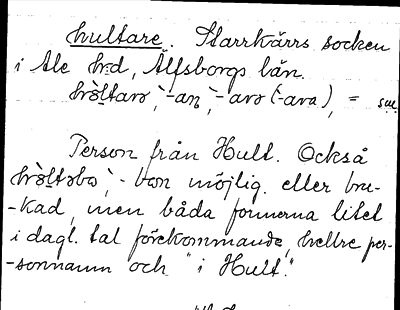 hultare. Starrkärrs socken
i Ale hrd, Älfsborgs län.
= sue.
Person från Hult. Också
-bon möjlig eller bru-
-kad, men båda formerna litet
i dagl. tal förekommande, hellre per-
-sonnamn och "i Hult."